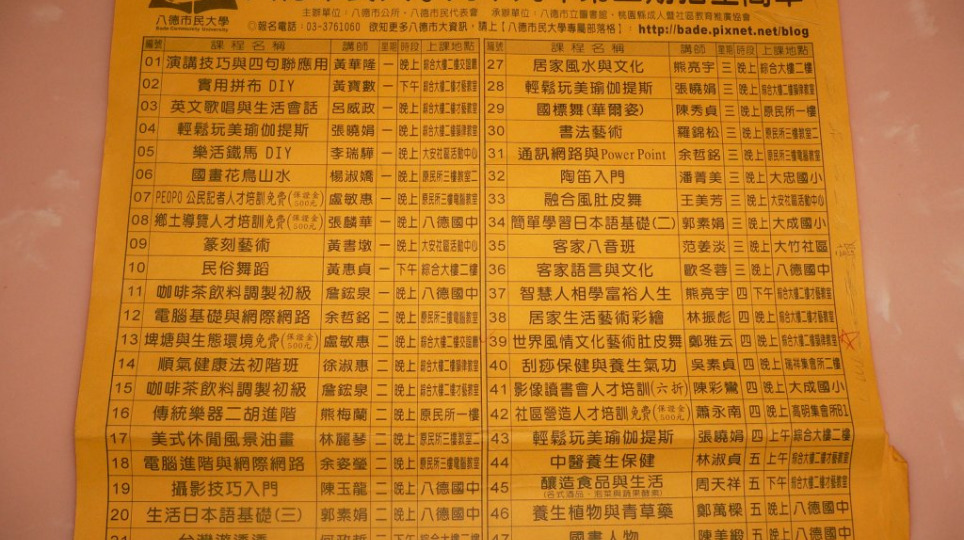 八德市民大學
Bade Community University
主辦單位:八德市公所、八德市民代表會 承辦單位:八德市立圖書館、桃園縣成人暨社區教育推廣協會
◎報名電話:03-3761060 欲知更多八德市大資訊,請上【八德市民大學專屬部落格】: http://bade.pixnet.net/blog
編號 課程名稱 講師 星期 時段 上課地點
01 演講技巧與四句聯應用 黃華隆 一 晚上
02 實用拼布 DIY 黃寶數 一 下午 綜合大樓二樓才藝教室
03 英文歌唱與生活會話 呂威政 一 晚上 綜合大樓二樓才藝教室
04 輕鬆玩美瑜伽提斯 張曉娟 一 晚上 綜合大樓二樓韻律教室
05 樂活鐵馬 DIY 李瑞驊 一 晚上 大安社區活動中心
06 國畫花鳥山水 楊淑嬌 一 晚上 原民所三樓教室二
07 PEOPO 公民記者人才培訓免費(保證金500元) 盧敏惠 一 晚上 原民所三樓電腦教室
08 鄉土導覽人才培訓免費(保證金500元) 張麟華 一 晚上 八德國中
09 篆刻藝術 黃書墩 一 晚上 大安社區活動中心
10 民俗舞蹈 黃惠貞 一 下午 綜合大樓二樓
11 咖啡茶飲料調製初級 詹鋐泉 一 晚上 八德國中
12 電腦基礎與網際網路 余哲銘 二 晚上 原民所三樓電腦教室
13 埤塘與生態環境免費(保證金500元) 盧敏惠 二 晚上
14 順氣健康法初階班 徐淑惠 二 晚上 綜合大樓二樓韻律教室
15 咖啡茶飲料調製初級 詹鋐泉 二 晚上 綜合大樓二樓才藝教室
16 傳統樂器二胡進階 熊梅蘭 二 晚上 原民所一樓
17 美式休閒風景油畫 林麗琴 二 晚上 原民所三樓教室二
18 電腦進階與網際網路 余姿瑩 二 晚上 原民所三樓電腦教室
19 攝影技巧入門 陳玉龍 二 晚上 八德國中
20 生活日本語基礎(三) 郭素娟 二 晚上 八德國中
編號 課程名稱 講師 星期 時段 上課地點
27 居家風水與文化 熊亮宇 三 晚上 綜合大樓二樓
28 輕鬆玩美瑜伽提斯 張曉娟 三 晚上 綜合大樓二樓韻律教室
29 國標舞(華爾姿) 陳秀貞 三 晚上 原民所一樓
30 書法藝術 羅錦松 三 晚上 原民所三樓教室二
31 通訊網路與Power Point 余哲銘 三 晚上 原民所三樓電腦教室
32 陶笛入門 潘菁美 三 晚上 大忠國小
33 融合風肚皮舞 王美芳 三 晚上 大安社區活動中心
34 簡單學習日本語基礎(二) 郭素娟 三 晚上 大成國小
35 客家八音班 范姜淡 三 晚上 大竹社區
36 客家語言與文化 歐冬蓉 三 晚上 八德國中
37 智慧人相學富裕人生 熊亮宇 四 下午 綜合大樓二樓才藝教室
38 居家生活藝術彩繪 林振彪 四 晚上 綜合大樓二樓才藝教室
39 世界風情文化藝術肚皮舞 鄭雅云 四 晚上 綜合大樓二樓韻律教室
40 刮痧保健與養生氣功 吳素貞 四 晚上 瑞祥集會所二樓
41 影像讀書會人才培訓(六折) 陳彩鸞 四 晚上 大成國小
42 社區營造人才培訓免費(保證金500元) 蕭永南 四 晚上 高明集會所B1
43 輕鬆玩美瑜伽提斯 張曉娟 四 上午 綜合大樓二樓
44 中醫養生保健 林淑貞 五 上午 綜合大樓二樓才藝教室
45 釀造食品與生活 周天祥 五 下午 綜合大樓二樓才藝教室
46 養生植物與青草藥 鄭萬樑 五 晚上 八德國中
47 國畫人物 陳美緞 五 晚上 八德國中